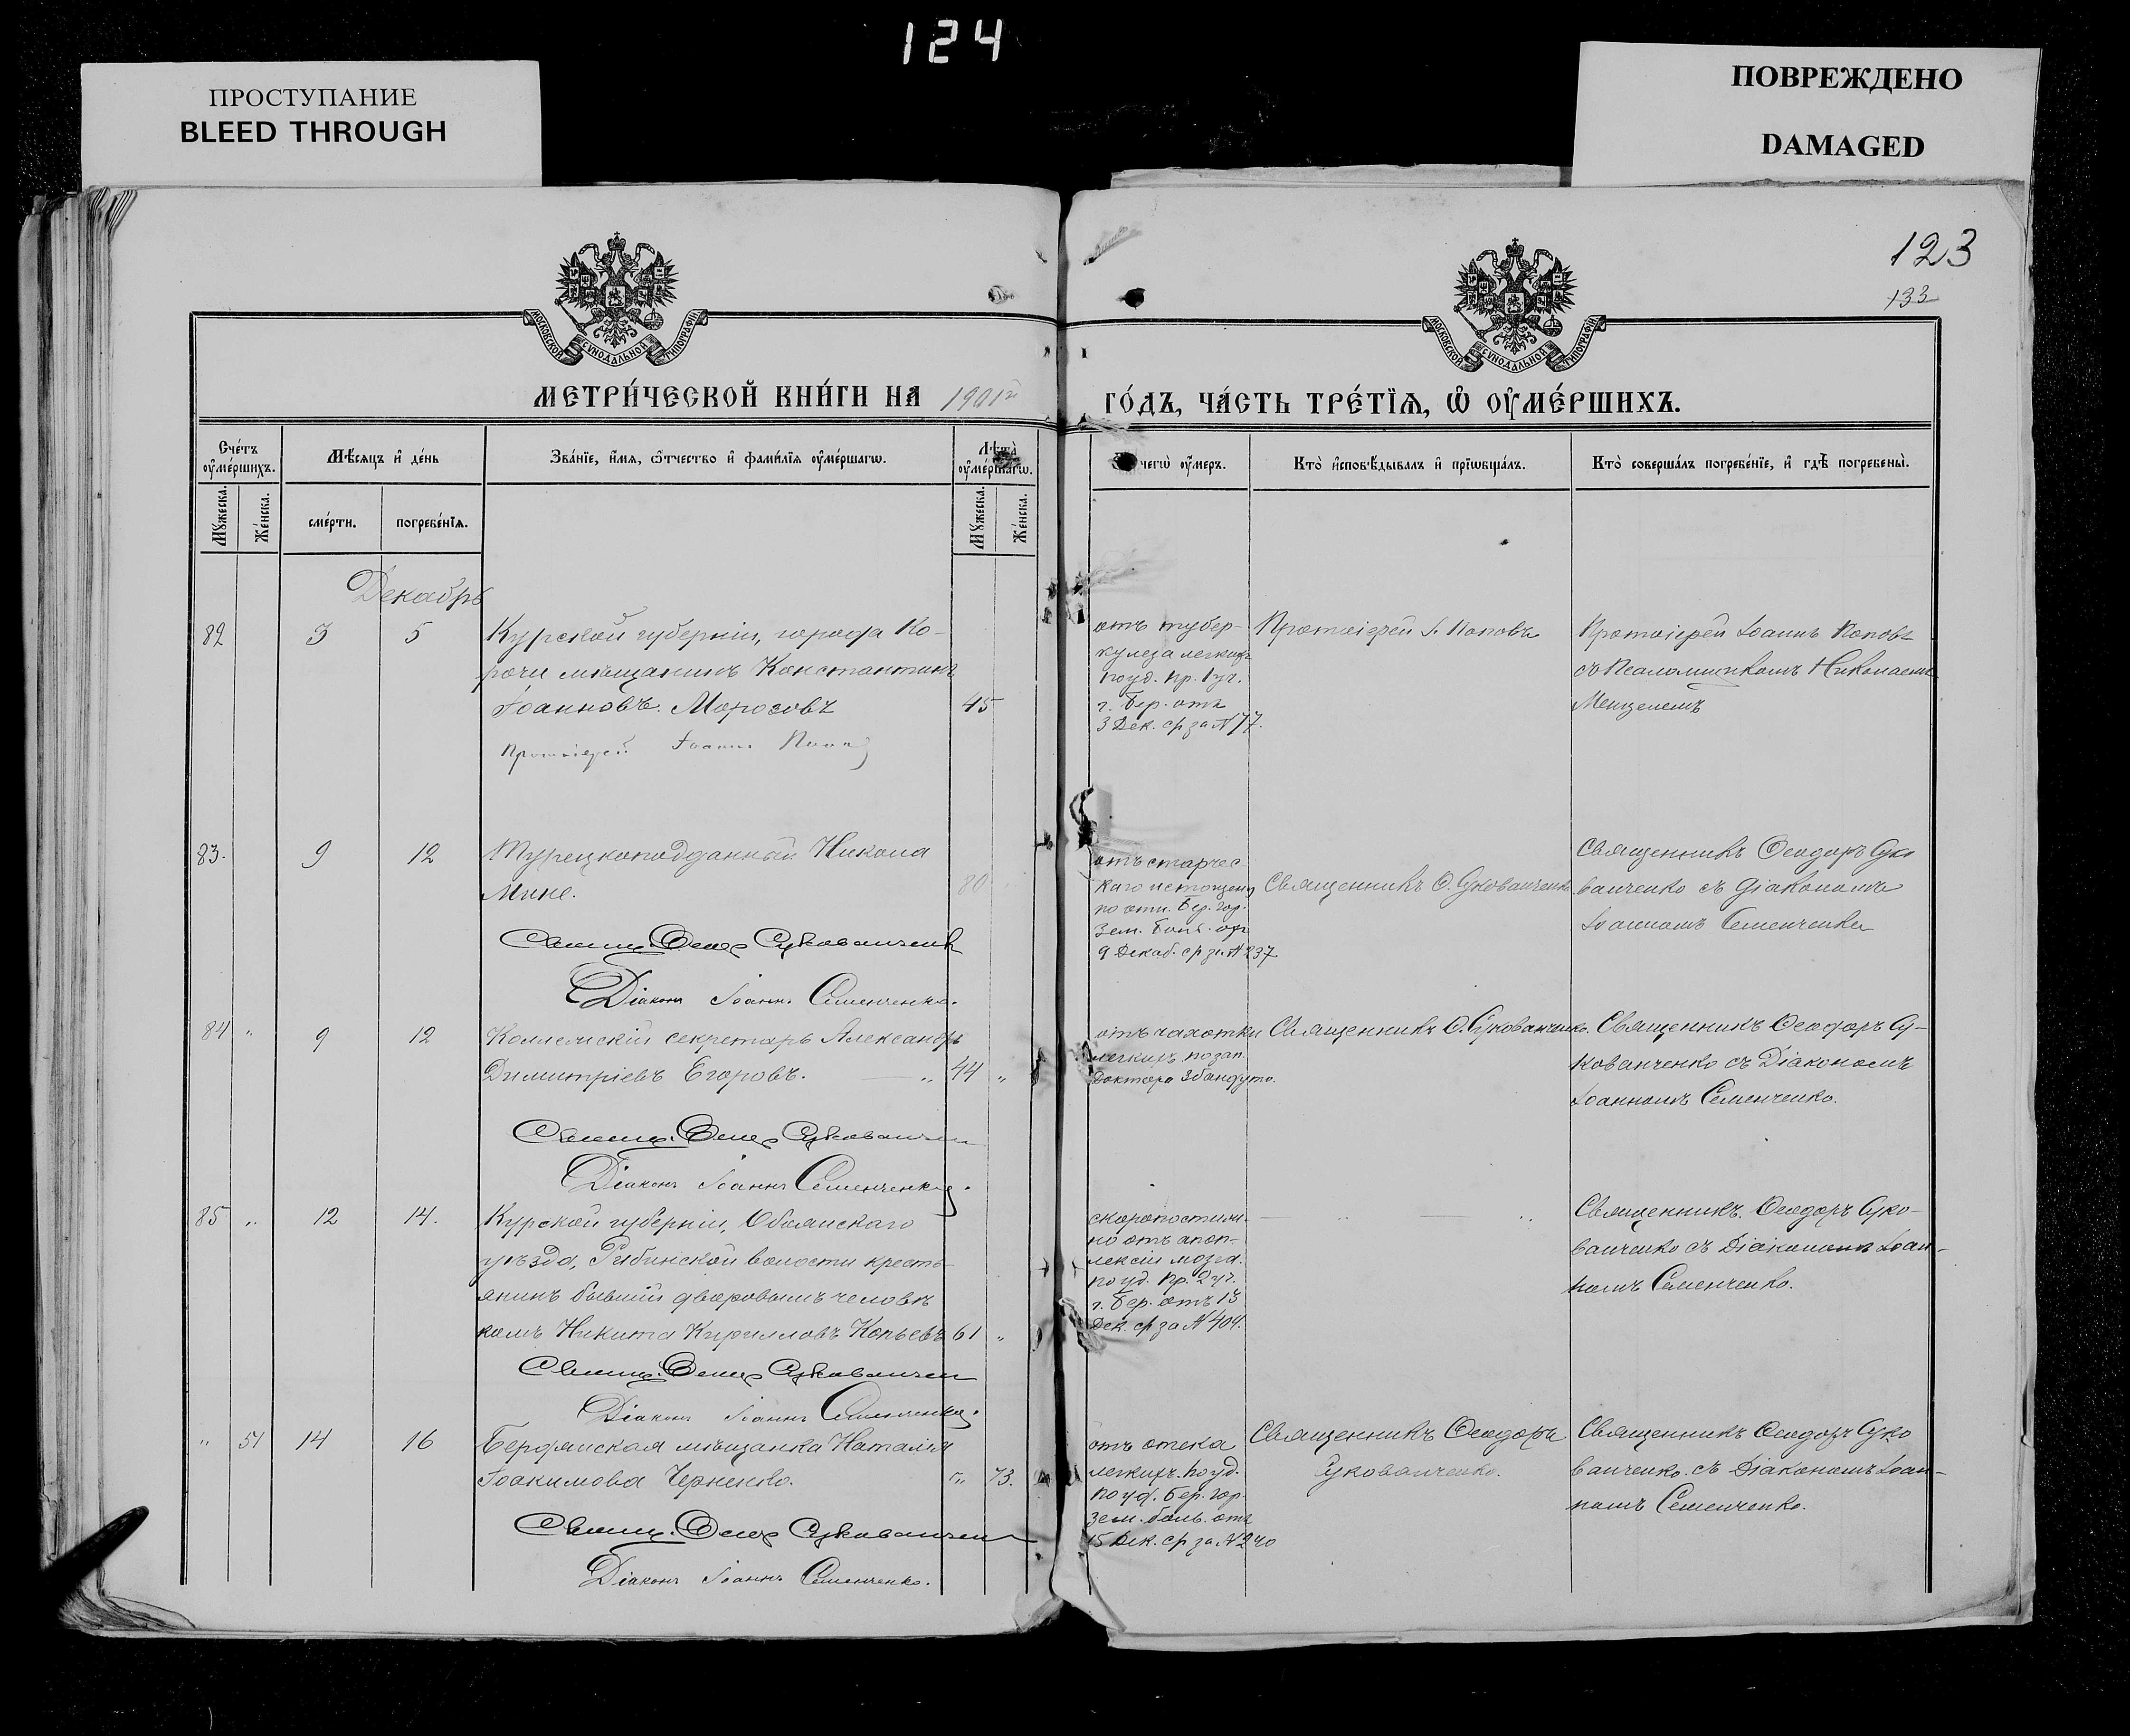 124
ПРОСТУПАНИЕ
BLEED THROUGH
ПОВРЕЖДЕНО
DAMAGED
123
133
МОСКОВСКОЙ СѴНОДАЛЬНОЙ ТИПОГРАФІИ
МОСКОВСКОЙ СѴНОДАЛЬНОЙ ТИПОГРАФІИ
МЕТРИ́ЧЕСКОЙ КНИ́ГИ НА 1901й ГО́ДЪ, ЧА́СТЬ ТРЕ́ТЇѦ, Ѡ҆ ОУ҆МЕ́РШИХЪ.
Сче́тъ оу҆ме́ршихъ.
Мѣ́сяцъ и҆ де́нь
Зва́нїе, и҆́мя, ѻ҆́тчество и҆ фами́лїя оу҆ме́ршагѡ.
Лѣ́та оу҆ме́ршагѡ.
чегѡ̀ оу҆́меръ.
Кто̀ и҆сповѣ́дывалъ и҆ прїѡбща́лъ.
Кто̀ соверша́лъ погребе́нїе, и҆ гдѣ̀ погребены̀.
Мꙋ́жеска.
Же́нска.
сме́рти.
погребе́нїѧ.
Мꙋ́жеска.
Же́нска.
Декабрь
82 3 5 Курской губерніи, города Ко-
рочи мѣщанинъ Константинъ
Іоанновъ Морозовъ 45
Протоіерей Іоаннъ Попов
отъ тубер-
кулеза легкихъ
по уд. пр. 1 уч.
г. Бер. отъ
3 Дек. ср за № 77.
Протоіерей І. Поповъ
Протоіерей Іоаннъ Поповъ
съ Псаломщикомъ Николаемъ
Менцелемъ
83. 9 12 Турецкоподданный Никола
Мине. 80
Священ. Ѳеод. Сукованченк
Діаконъ Іоаннъ Семенченко.
отъ старчес
каго истощенія
по отн. Бер. гор.
Зем. больн. отъ
9 Декаб. ср за № 237
Священникъ Ѳ. Сукованченко
Священникъ Ѳеодоръ Суко
ванченко съ діакономъ
Іоанномъ Семенченко
84 " 9 12 Коллежскій секретарь Александръ
Димитріевъ Егоровъ. — " 44 "
Священ. Ѳеод. Сукованчен
Діаконъ Іоаннъ Семенченко.
отъ чахотки
легкихъ по зап.
Доктора
Священникъ Ѳ. Сукованченко.
Священникъ Ѳеодоръ Су-
кованченко съ Діакономъ
Іоанномъ Семенченко.
85 " 12 14. Курской губерніи, Обоянскаго
уѣзда, Рыбинской волости кресть-
янинъ бывшій дворовымъ человѣ
комъ Никита Кирилловъ Копьевъ 61 "
Священ. Ѳеод. Сукованчен
Діаконъ Іоаннъ Семенченко.
скоропостиж-
но отъ апоп-
лексіи мозга.
по уд. пр. 2 уч.
г. Бер. отъ 13
Дек. ср за № 404.
— " — "
Священникъ Ѳеодоръ Суко-
ванченко съ Діакономъ Іоан-
номъ Семенченко.
" 51 14 16 Бердянская мѣщанка Наталія
Іоакимова Черненко. " 73.
Священ. Ѳеод. Сукованчен
Діаконъ Іоаннъ Семенченко.
отъ отека
легкихъ. по уд.
по уд. Бер. гор.
Зем. боль. отъ
15 Дек. ср за № 240
Священникъ Ѳеодоръ
Сукованченко.
Священникъ Ѳеодоръ Суко
ванченко съ Діакономъ Іоан-
номъ Семенченко.